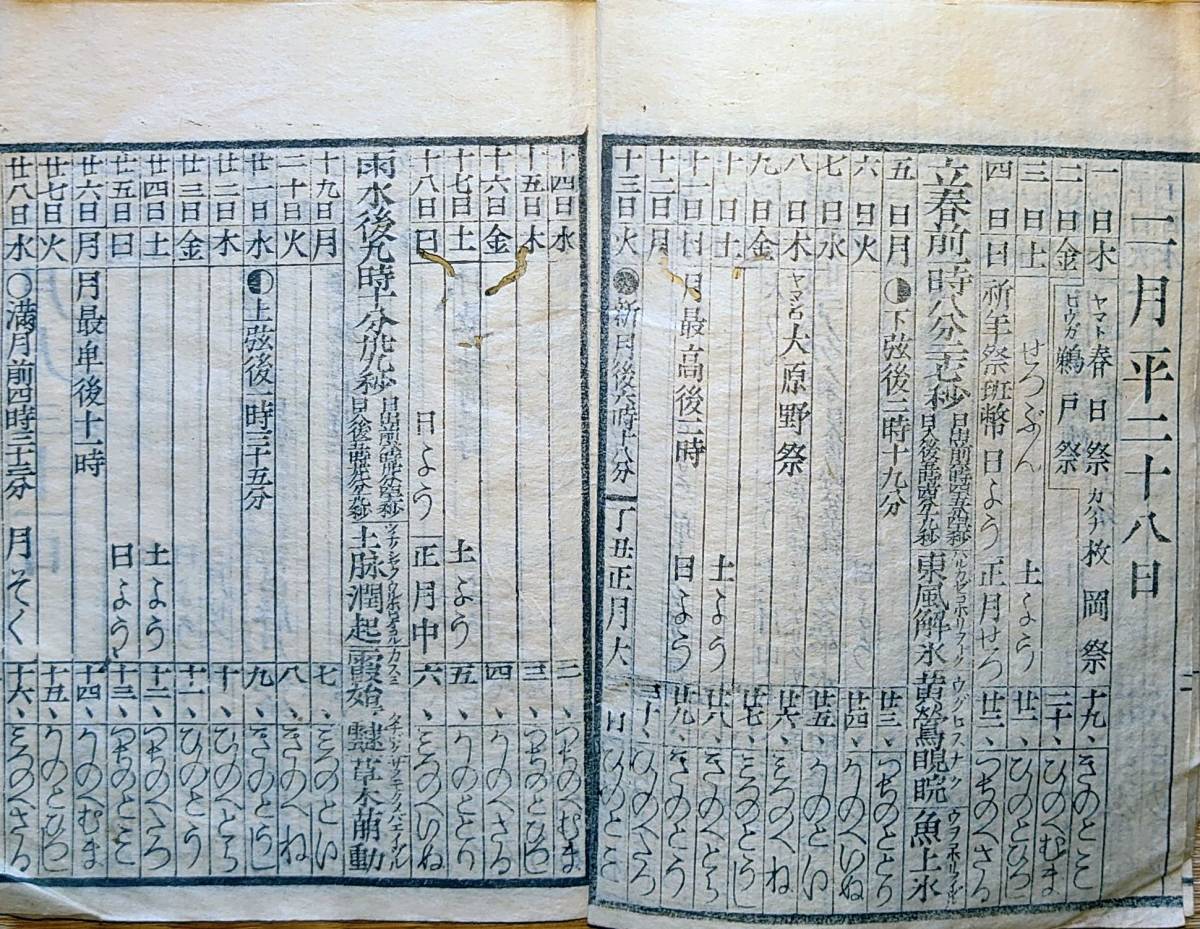 二月平二十八日
一日木 ヤマト春日祭 カハチ枚岡祭 十九、きのとミ
二日金 ヒウガ鵜戸祭 二十、ひのへむま
三日土 せつぶん 土よう 廿一、ひのとひつじ
四日日 祈年祭班幣 日よう 正月せつ 廿二、つちのへさる
立春前一時八分三十七秒 東風解氷 ハルカゼコホリヲトク 黄鶯睍睆 ウグヒスナク 魚上氷
五日月 下弦後二時十九分 廿三、つちのととり
六日火 廿四、かのへいぬ
七日水 廿五、かのとい
八日木 ヤマシロ大原野祭 廿六、みづのへね
九日金 廿七、みづのとうし
十日土 土よう 廿八、きのへとら
十一日日 月最高後二時 日よう 廿九、きのとう
十二日月 三十、ひのへたつ
十三日火 新月後六時十八分 丁丑正月大 一日 ひのとミ
十四日水 二、つちのへむま
十五日木 三、つちのとひつじ
十六日金 四、かのへさる
十七日土 土よう 五、かのととり
十八日日 日よう 正月中 六、みづのへいぬ
雨水後九時十分 土脉潤起 霞始靆 草木萠動
十九日月 七、みづのとい
二十日火 八、きのへね
廿一日水 上弦後一時三十五分 九、きのとうし
廿二日木 十、ひのへとら
廿三日金 十一、ひのとう
廿四日土 土よう 十二、つちのへたつ
廿五日日 日よう 十三、つちのとミ
廿六日月 月最卑後十一時 十四、かのへむま
廿七日火 十五、かのとひつじ
廿八日水 ○満月前四時三十三分 月そく 十六、みづのへさる